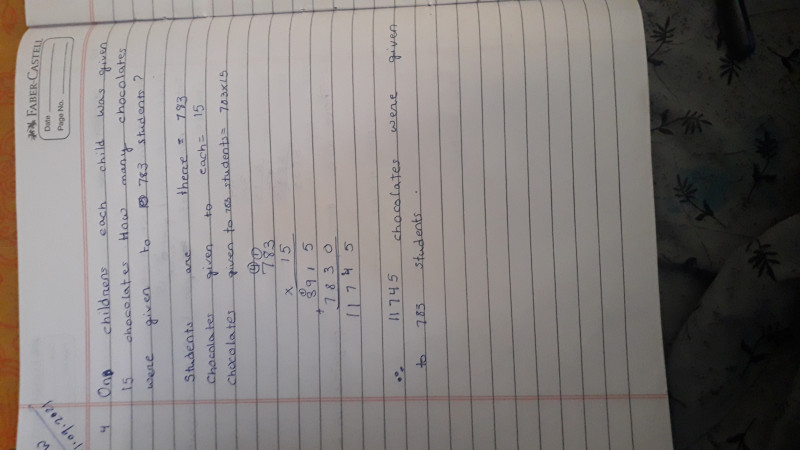 FABER-CASTELL
Date
Page No.
4 On childrens each child was given
15 chocolates How many chocolates
were given to 783 students?
Students are there = 783
Chocolates given to each = 15
Chocolates given to 783 students = 783x15
④①
783
x 15
3915
+7830
11745
∴ 11745 chocolates were given
to 783 students.